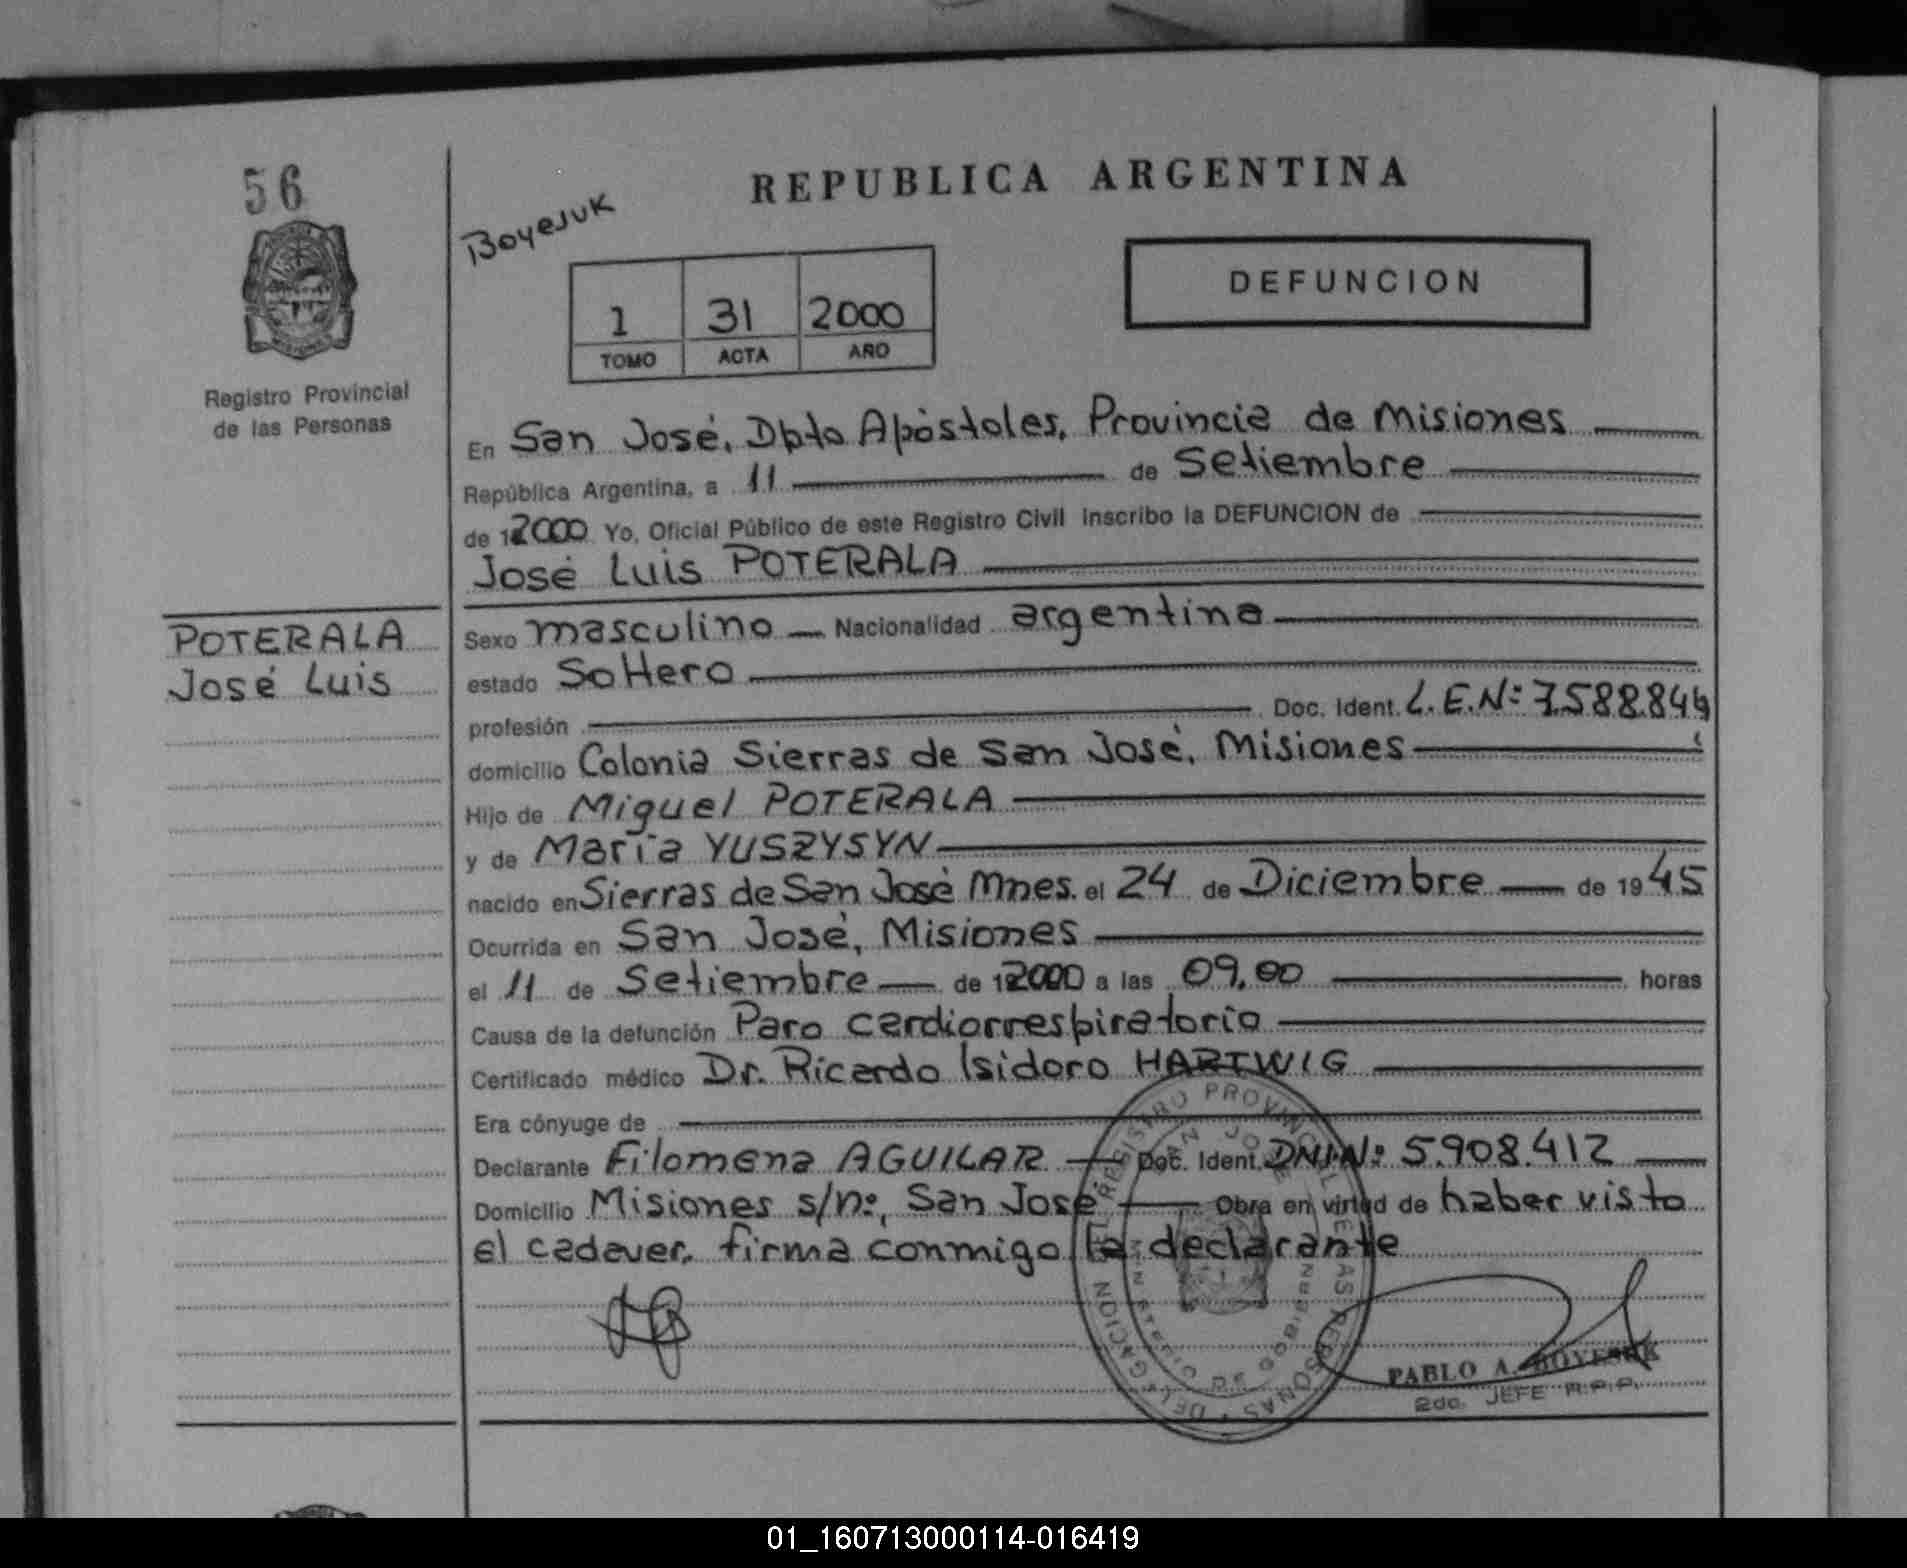 56
REPUBLICA ARGENTINA
Boyejuk
DEFUNCION
1 31 2000
TOMO ACTA AÑO
Registro Provincial
de las Personas
En San José, Dpto Apóstoles, Provincia de Misiones
República Argentina, a 11 de Setiembre
de 12000 Yo, Oficial Público de este Registro Civil inscribo la DEFUNCION de
José Luis POTERALA
POTERALA
José Luis
Sexo masculino Nacionalidad argentina
estado Soltero
profesión Doc. Ident. L.E.Nº 7.588.844
domicilio Colonia Sierras de San José, Misiones
Hijo de Miguel POTERALA
y de María YUSZYSYN
nacido en Sierras de San José Mnes. el 24 de Diciembre de 1945
Ocurrida en San José, Misiones
el 11 de Setiembre de 12000 a las 09,00 horas
Causa de la defunción Paro cardiorrespiratorio
Certificado médico Dr. Ricardo Isidoro HARTWIG
Era cónyuge de
Declarante Filomena AGUILAR Doc. Ident. DNI.Nº 5.908.412
Domicilio Misiones s/nº, San José Obra en virtud de haber visto
el cadaver, firma conmigo la declarante
DELEGACION DEL REGISTRO PROVINCIAL DE LAS PERSONAS
SAN JOSE
MINISTERIO DE GOBIERNO
PABLO A. BOYESUK
2do. JEFE R.P.P.
01_160713000114-016419